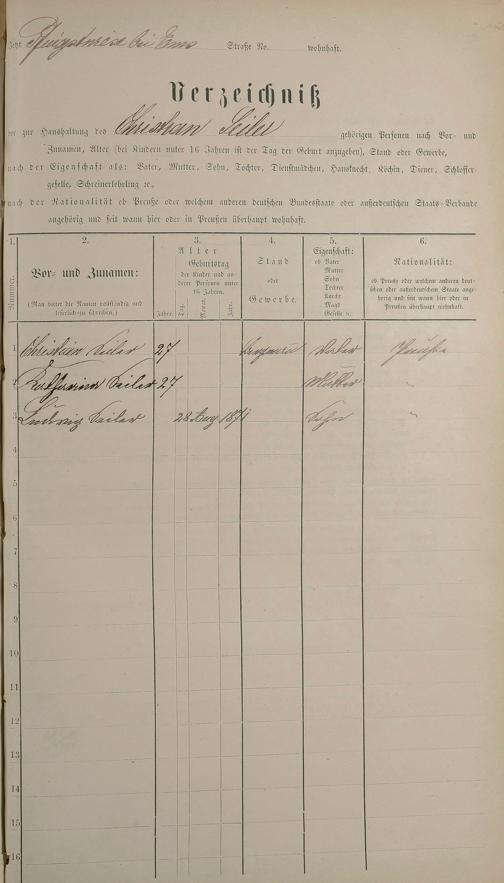 Jetzt Pfingstwiese bei Ems Straße No. wohnhaft.
Verzeichniß
der zur Haushaltung des Christian Seiler gehörigen Personen nach Vor- und
Zunamen, Alter (bei Kindern unter 16 Jahren ist der Tag der Geburt anzugeben), Stand oder Gewerbe,
nach der Eigenschaft als: Vater, Mutter, Sohn, Tochter, Dienstmädchen, Hausknecht, Köchin, Diener, Schlosser-
geselle, Schreinerlehrling ꝛc.,
nach der Nationalität ob Preuße oder welchem anderen deutschen Bundesstaate oder außerdeutschen Staats-Verbande
angehörig und seit wann hier oder in Preußen überhaupt wohnhaft.
1. 2. 3. 4. 5. 6.
Nummer.
Vor- und Zunamen:
(Man bittet die Namen vollständig und
leserlich zu schreiben.)
Alter
Geburtstag
der Kinder und an-
derer Personen unter
16 Jahren.
Jahre. Tag. Monat. Jahr.
Stand
oder
Gewerbe
Eigenschaft:
ob Vater
Mutter
Sohn
Tochter
Knecht
Magd
Geselle ꝛc.
Nationalität:
ob Preuße oder welchem anderen deut-
schen oder außerdeutschen Staate ange-
hörig und seit wann hier oder in
Preußen überhaupt wohnhaft.
1 Christian Seiler 27 Bergmann Vater Preuße
2 Katharina Seiler 27 Mutter "
3 Ludwig Seiler 28 Aug 1871 Sohn "
4
5
6
7
8
9
10
11
12
13
14
15
16